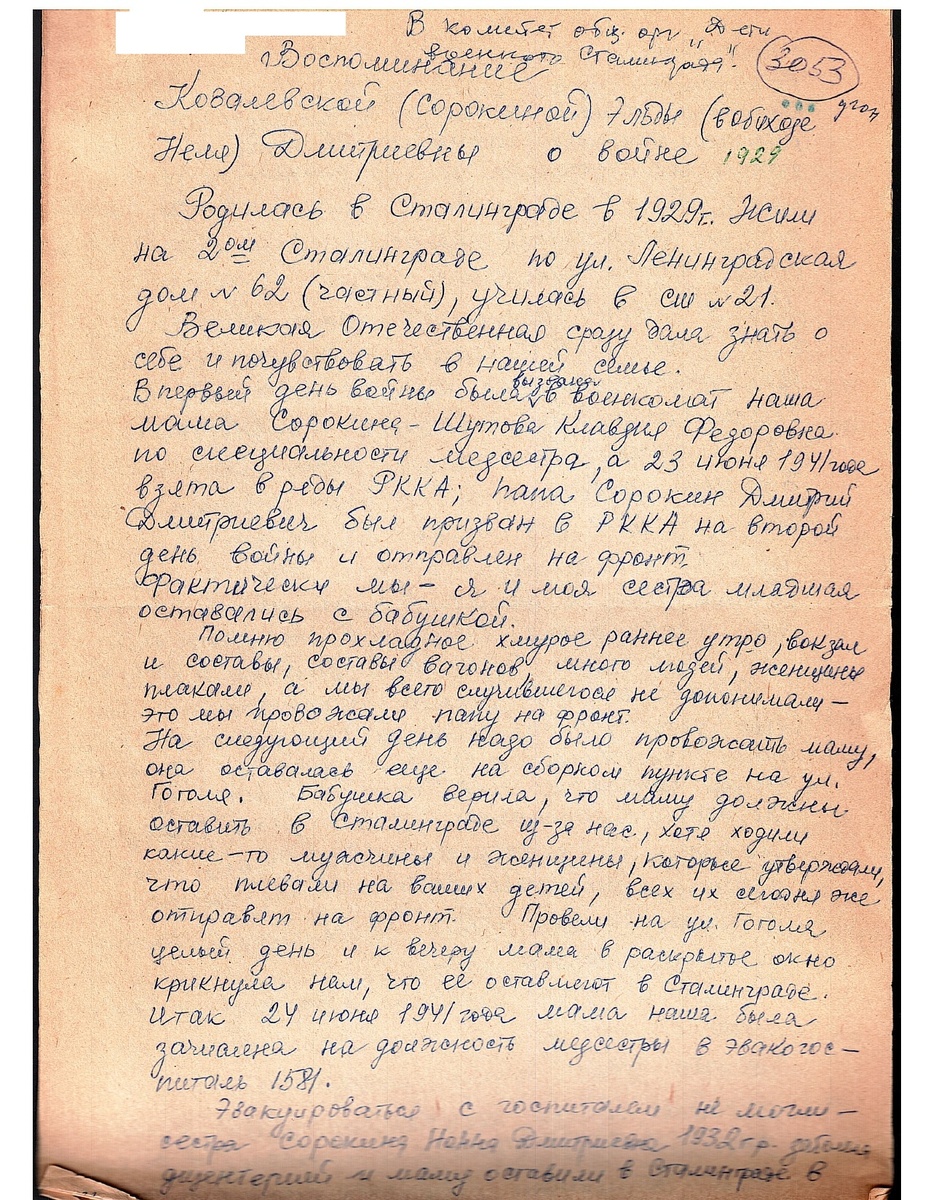 В комитет общ. орг. "Дети
военного Сталинграда".
Воспоминание
3053
Ковалевской (Сорокиной) Эльды (в обиходе
Неля) Дмитриевны о войне 1929
Родилась в Сталинграде в 1929г. Жили
на 2ом Сталинграде по ул. Ленинградская
дом № 62 (частный), училась в сш № 21.
Великая Отечественная сразу дала знать о
себе и почувствовать в нашей семье.
В первый день войны была вызвана в военкомат наша
мама Сорокина-Шутова Клавдия Федоровна
по специальности медсестра, а 23 июня 1941 года
взята в ряды РККА; папа Сорокин Дмитрий
Дмитриевич был призван в РККА на второй
день войны и отправлен на фронт.
Фактически мы - я и моя сестра младшая
оставались с бабушкой.
Помню прохладное хмурое раннее утро, вокзал
и составы, составы вагонов, много людей, женщины
плакали, а мы всего случившегося не допонимали -
это мы провожали папу на фронт.
На следующий день надо было провожать маму,
она оставалась еще на сборном пункте на ул.
Гоголя. Бабушка верила, что маму должны
оставить в Сталинграде из-за нас, хотя ходили
какие-то мужчины и женщины, которые утверждали,
что плевали на ваших детей, всех их сегодня же
отправят на фронт. Провели на ул. Гоголя
целый день и к вечеру мама в раскрытое окно
крикнула нам, что ее оставляют в Сталинграде.
Итак 24 июня 1941 года мама наша была
зачислена на должность медсестры в эвакогос-
питаль 1581.
Эвакуироваться с госпиталем не могли -
сестра Сорокина Нонна Дмитриевна 1932 г.р. заболела
дизентерией и маму оставили в Сталинграде в